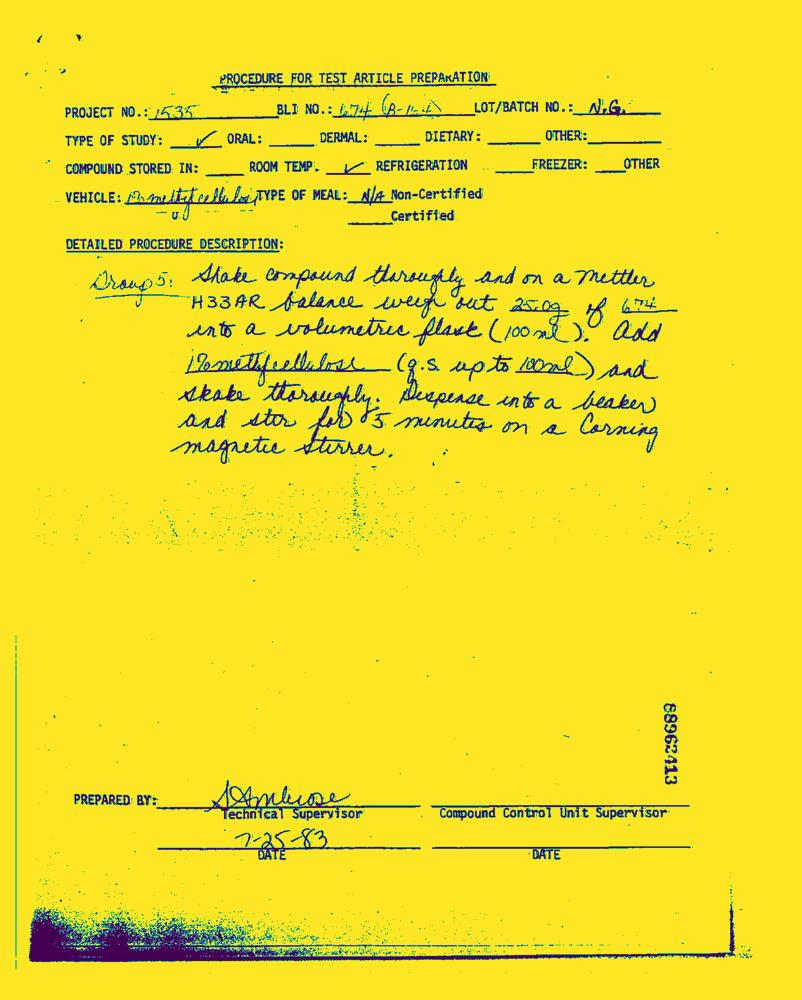 PROCEDURE FOR TEST ARTICLE PREPARATION
PROJECT NO.: 1535 BLI NO.: 674 LOT/BATCH NO.: N.G.
TYPE OF STUDY: ✓ ORAL: DERMAL: DIETARY: OTHER:
COMPOUND STORED IN: ROOM TEMP. ✓ REFRIGERATION FREEZER: OTHER
VEHICLE: 1% methylcellulose TYPE OF MEAL: N/A Non-Certified
Certified
DETAILED PROCEDURE DESCRIPTION:
Group 5: Shake compound thoroughly and on a Mettler
H33AR balance weigh out 25.0g of 674
into a volumetric flask (100 ml). Add
1% methylcellulose (q.s. up to 100ml) and
shake thoroughly. Dispense into a beaker
and stir for 5 minutes on a Corning
magnetic stirrer.
88962413
PREPARED BY: SAmbrose
Technical Supervisor Compound Control Unit Supervisor
7-25-83
DATE DATE